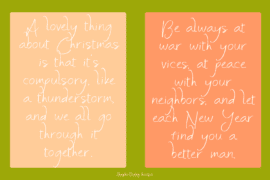 A lovely thing
about Christmas
is that it's
compulsory, like
a thunderstorm,
and we all go
through it
together.
Be always at
war with your
vices, at peace
with your
neighbors, and let
each New Year
find you a
better man.